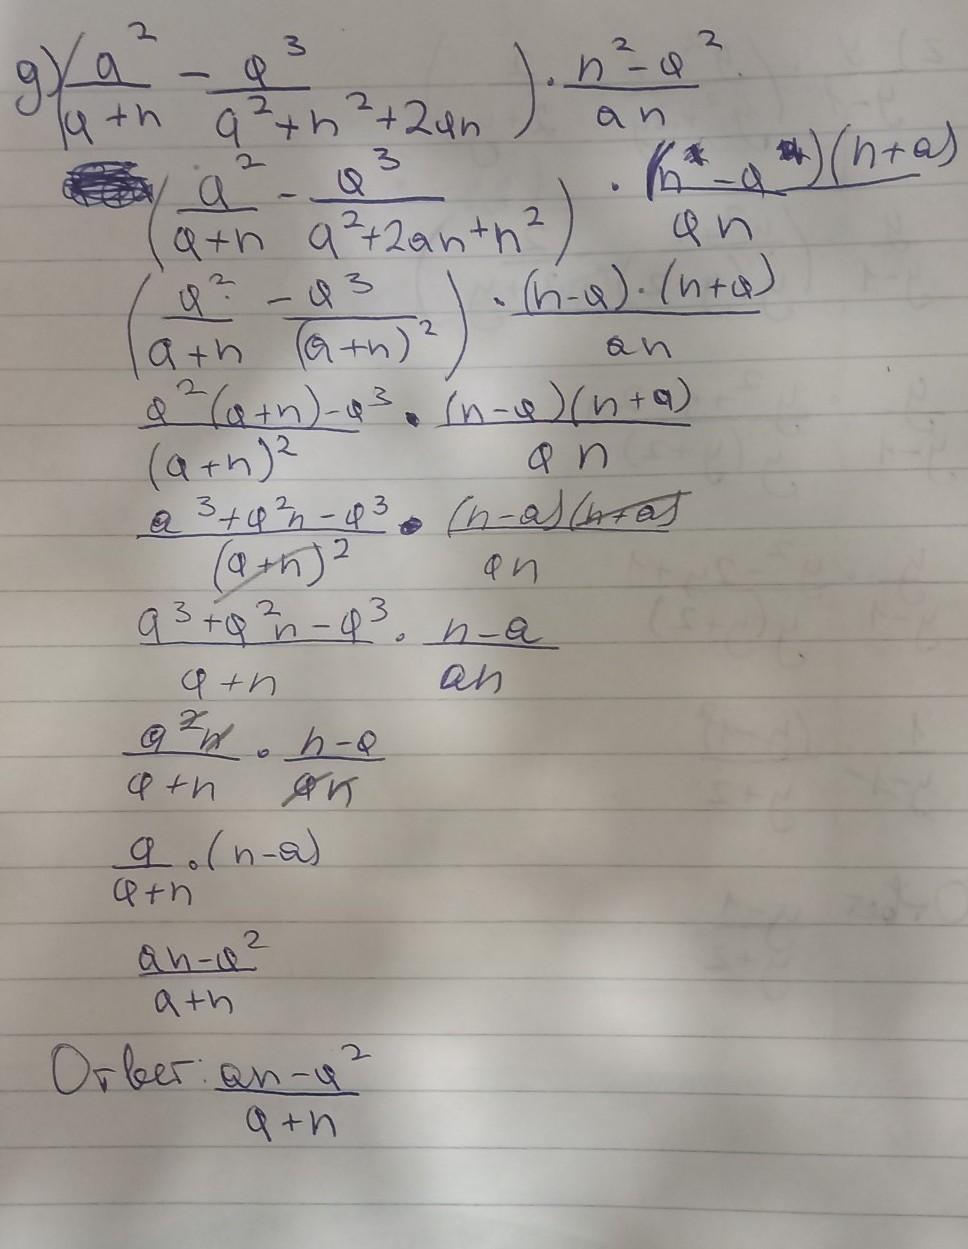 g) (a²/(a+n) - a³/(a²+n²+2an)) · (n²-a²)/(an)
(a²/(a+n) - a³/(a²+2an+n²)) · (n-a)(n+a)/(an)
(a²/(a+n) - a³/(a+n)²) · (n-a)·(n+a)/(an)
(a²(a+n)-a³)/(a+n)² · (n-a)(n+a)/(an)
(a³+a²n-a³)/(a+n)² · (n-a)(n+a)/(an)
(a³+a²n-a³)/(a+n) · (n-a)/(an)
a²n/(a+n) · (n-a)/(an)
a/(a+n) · (n-a)
(an-a²)/(a+n)
Ответ: (an-a²)/(a+n)